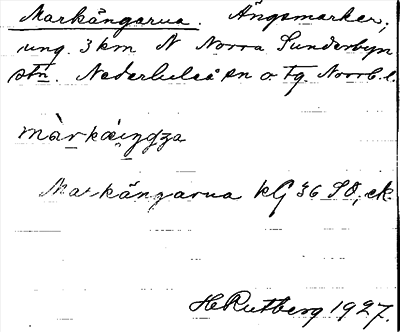 Markängarna. Ängsmarker,
ung. 3 km N Norra Sunderbyn
stn. Nederluleå sn o tg Norrb. l.
Markängarna kG 36 SO, ek.
H Rutberg 1927.